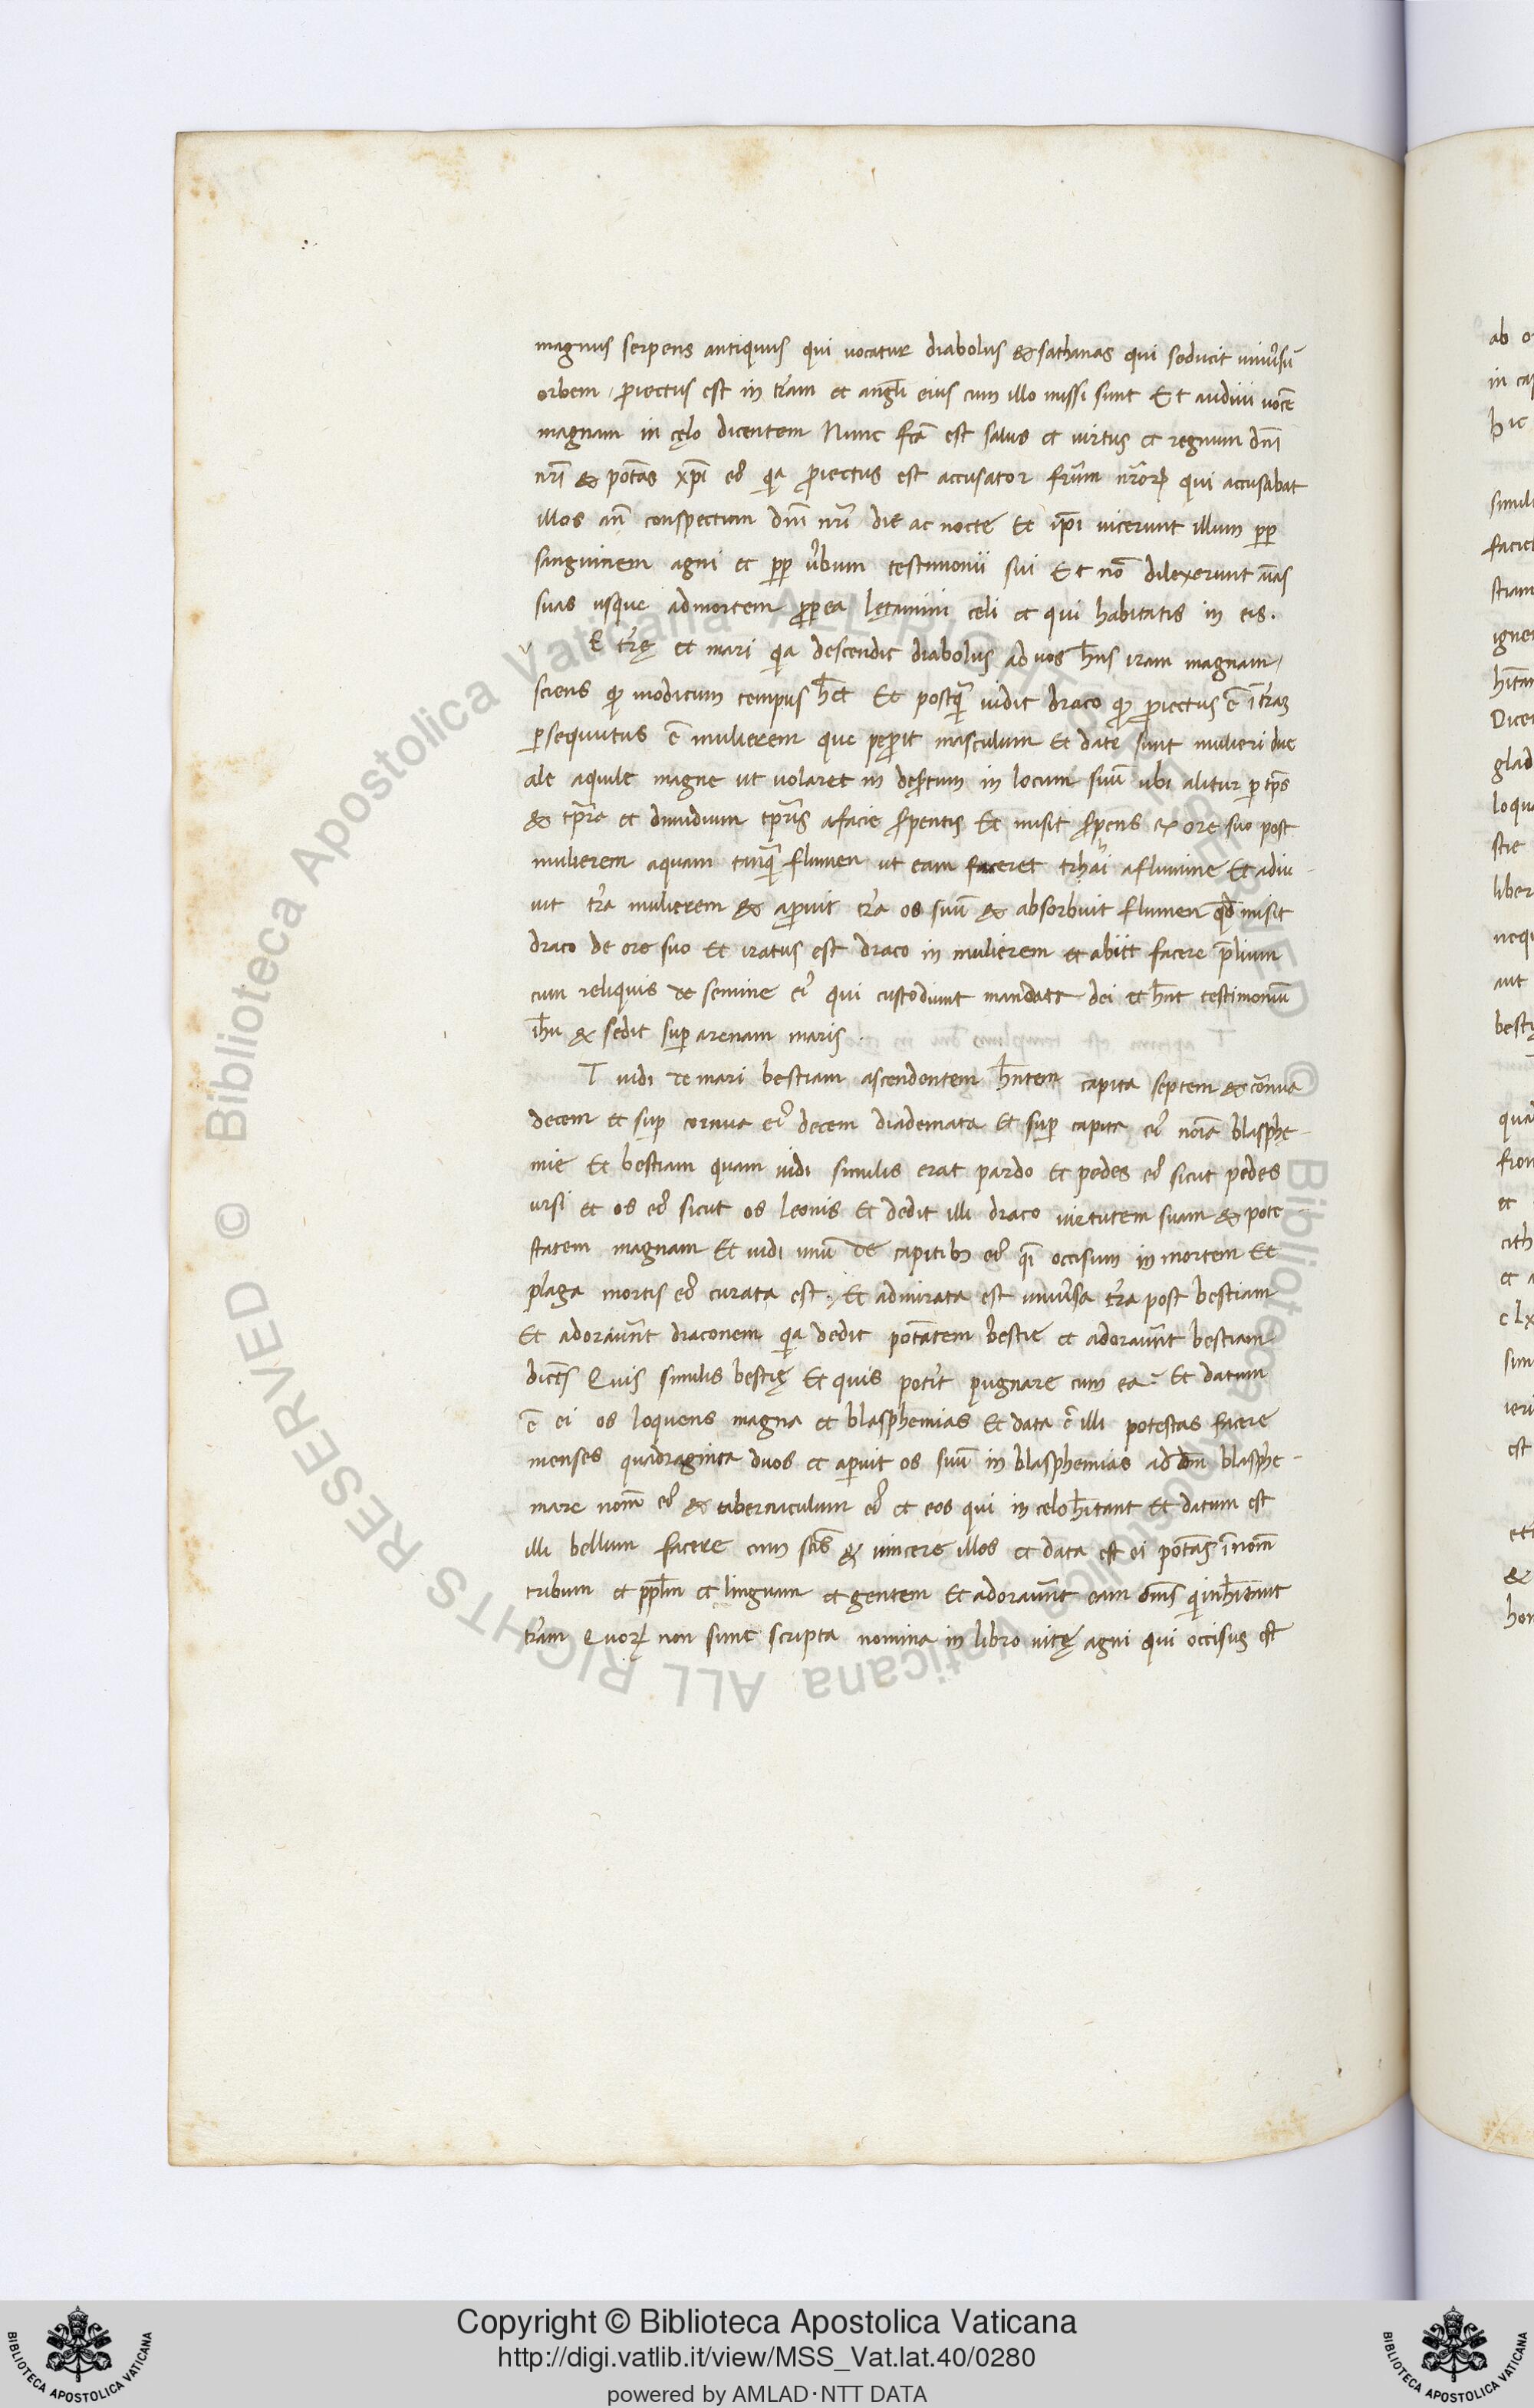 magnus serpens antiquus qui uocatur diabolus & sathanas qui seducit uniu͛sū
orbem, ꝓiectus est in tr̄am et angl̄i eius cum illo missi sunt Et audiui uocē
magnam in cęlo dicentem Nunc fcā est salus et uirtus et regnum dn̄i
nr̄i & potās xp̄i eꝰ qa ꝓiectus est accusator fr̄um nr̄oꝝ qui accusabat
illos an̄ conspectum dn̄i nr̄i die ac nocte Et ip̄i uicerunt illum ꝓp
sanguinem agni et ꝓp u͛bum testimonii sui Et nō dilexerunt aīas
suas usque admortem ꝓpea lętamini celi et qui habitatis in eis.
v E tr̄ę et mari qa descendit diabolus ad uos hn̄s iram magnam,
sciens qꝫ modicum tempus hēt Et postꝗ̄ uidit draco qꝫ ꝓiectus ē ī tr̄aꝫ
ꝑsequutus ē mulierem que peꝑit masculum Et date sunt mulieri due
ale aquile magne ut uolaret in des͛tum in locum suū ubi alitur ꝑ tp̄s
& tp̄ra et dimidium tp̄ris afacie s͛pentis Et misit s͛pens ex ore suo post
mulierem aquam tanꝗ̄ flumen ut eam faceret trahi aflumine Et adiu
uit tr̄a mulierem & aꝑuit tr̄a os suū & absorbuit flumen qd̄ misit
draco de ore suo Et iratus est draco in mulierem et abiit facere p̄lium
cum reliquis de semine eiꝰ qui custodiunt mandata dei et hn̄t testimoniū
ih̄u & sedit suꝑ arenam maris.
T uidi de mari bestiam ascendentem hn̄tem capita septem & cornua
decem et suꝑ cornua eiꝰ decem diademata Et suꝑ capita eiꝰ noīa blasphe
mie Et bestiam quam uidi similis erat pardo Et pedes eꝰ sicut pedes
ursi et os eꝰ sicut os leonis Et dedit illi draco uirtutem suam & pote
statem magnam Et uidi unū de capitibꝫ eꝰ qi̅ occisum in mortem Et
plaga mortis eꝰ curata est. Et admirata est uniu͛sa tr̄a post bestiam
Et adorauūt draconem qa dedit potātem bestie et adorauūt bestiam
dicēs Quis similis bestię Et quis poterit pugnare cum ea? Et datum
ē ei os loquens magna et blasphemias Et data ē illi potestas facere
menses quadraginta duos et aꝑuit os suū in blasphemias ad dm̄ blasphe
mare nom̄ eꝰ & tabernaculum eꝰ et eos qui in celo hītant Et datum est
illi bellum facere cum scīs & uincere illos et data est ei potās ī nom̄
tribum et ppl̄m et linguam et gentem Et adorauūt eam om̄s qi inhītant
tr̄am Quoꝝ non sunt scripta nomina in libro uitę agni qui occisus est
ab
in
hic
simili
faciet
stram
igne
hītan
Dice
glad
loqu
stie
liber
nequ
aut
besti
qua
fron
et
cith
et
clx
sim
est
&
hom
Biblioteca Apostolica Vaticana ALL RIGHTS RESERVED ©
Biblioteca Apostolica Vaticana ALL RIGHTS RESERVED ©
Copyright © Biblioteca Apostolica Vaticana
http://digi.vatlib.it/view/MSS_Vat.lat.40/0280
powered by AMLAD·NTT DATA
BIBLIOTECA APOSTOLICA VATICANA
BIBLIOTECA APOSTOLICA VATICANA